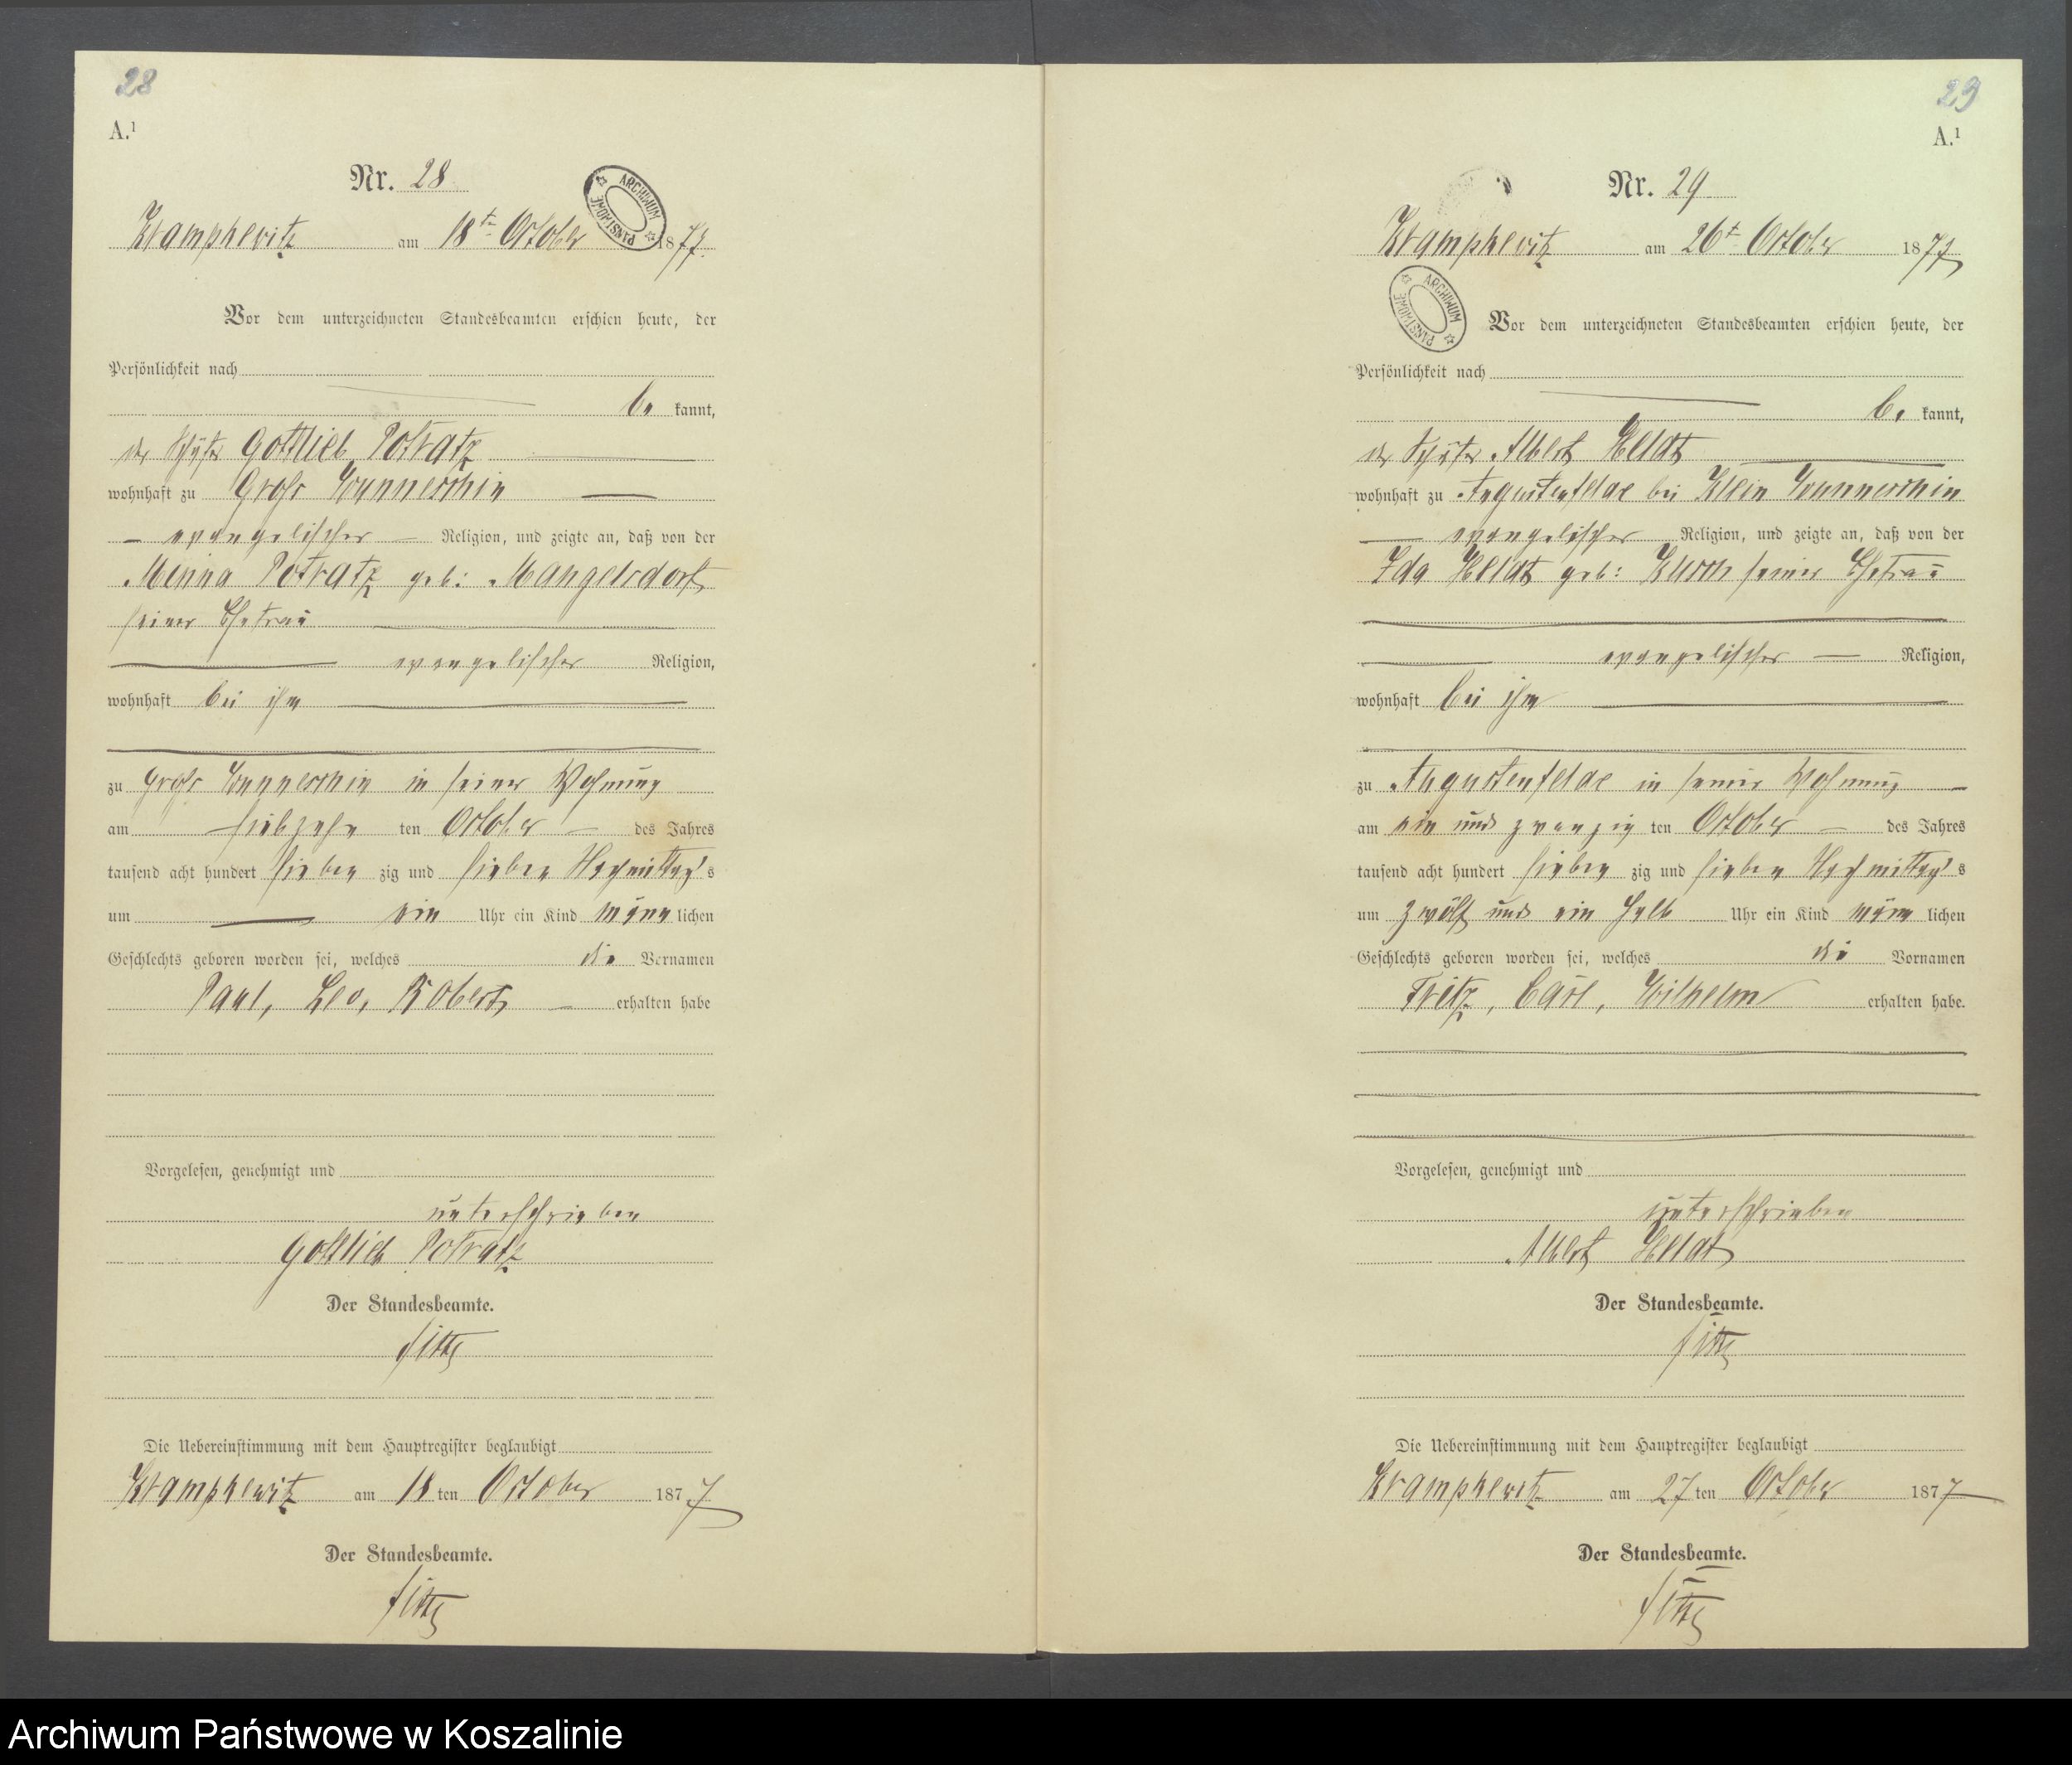 28
A.¹
Nr. 28
ARCHIWUM PAŃSTWOWE
Krampkewitz am 18t October 1877.
Vor dem unterzeichneten Standesbeamten erschien heute, der
Persönlichkeit nach
be kannt,
der Gottlieb Potratz
wohnhaft zu Groß Wunneschin
evangelischer Religion, und zeigte an, daß von der
Minna Potratz geb: Mangelsdorf
seiner Ehefrau
evangelischer Religion,
wohnhaft bei ihm
zu Groß Wunneschin in seiner Wohnung
am siebzehn ten October des Jahres
tausend acht hundert sieben zig und sieben Nachmittag's
um ein Uhr ein Kind männ lichen
Geschlechts geboren worden sei, welches die Vornamen
Paul, Leo, Robert, erhalten habe
Vorgelesen, genehmigt und
unterschrieben
Gottlieb Potratz
Der Standesbeamte.
Die Uebereinstimmung mit dem Hauptregister beglaubigt
Krampkewitz am 18 ten October 1877
Der Standesbeamte.
29
A.¹
Nr. 29
Krampkewitz am 26t October 1877
ARCHIWUM PAŃSTWOWE
Vor dem unterzeichneten Standesbeamten erschien heute, der
Persönlichkeit nach
be kannt,
der Albert Heldt
wohnhaft zu Augustenfelde bei Klein Wunneschin
evangelischer Religion, und zeigte an, daß von der
Ida Heldt geb: seiner Ehefrau
evangelischer Religion,
wohnhaft bei ihm
zu Augustenfelde in seiner Wohnung
am ein und zwanzig ten October des Jahres
tausend acht hundert sieben zig und sieben Nachmittag's
um zwölf und ein halb Uhr ein Kind männ lichen
Geschlechts geboren worden sei, welches die Vornamen
Fritz, Carl, Wilhelm erhalten habe.
Vorgelesen, genehmigt und
unterschrieben
Albert Heldt
Der Standesbeamte.
Die Uebereinstimmung mit dem Hauptregister beglaubigt
Krampkewitz am 27 ten October 1877
Der Standesbeamte.
Archiwum Państwowe w Koszalinie